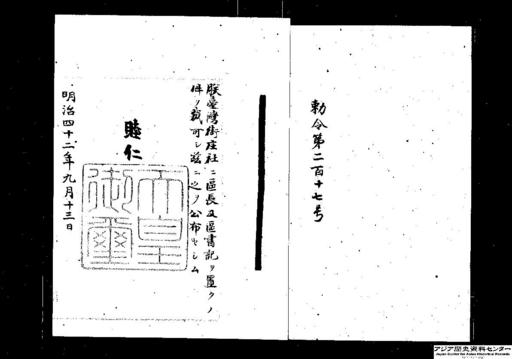 勅令第二百十七号
朕臺灣街庄社ニ區長及區書記ヲ置クノ
件ヲ裁可シ茲ニ之ヲ公布セシム
睦仁
天皇
御璽
明治四十二年九月十三日
アジア歴史資料センター
Japan Center for Asian Historical Records